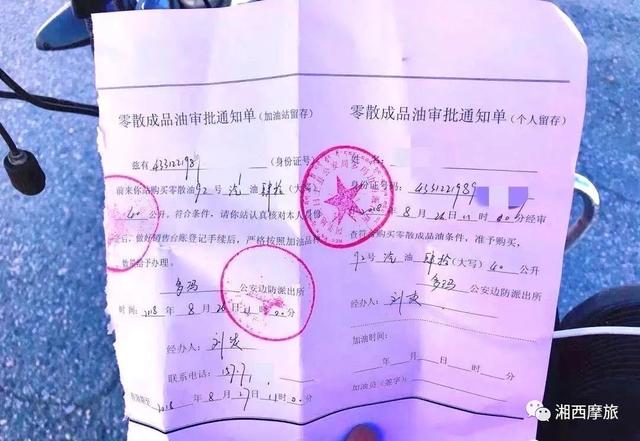 零散成品油审批通知单（加油站留存）
兹有 433122198 （身份证号）
前来你站购买零散油 92 号 汽 油 肆拾 （大写）
40 公升。符合条件，请你站认真核对本人身份
做好销售台账登记手续后，严格按照加油品种
数量给予办理。
多玛 公安边防派出所
时间：2018 年 8 月 26 日 11 时 00 分
经办人：刘
联系电话：157.7
有效期至 2018 年 8 月 27 日 11 时 00 分
零散成品油审批通知单（个人留存）
姓名：
身份证号码：4331221989
2018 年 8 月 26 日 11 时 00 分经审
查符合购买零散成品油条件，准予购买，
92号 汽 油 肆拾（大写）40 公升
多玛 公安边防派出所
经办人：刘
加油时间：
年 月 日 时 分
加油员（签字）
湘西摩旅